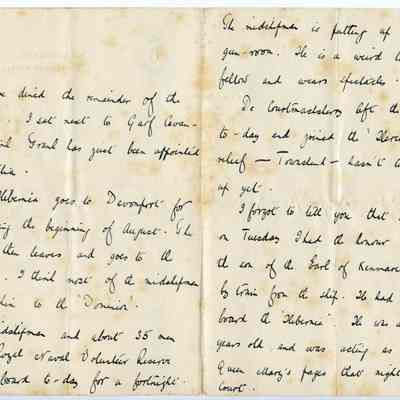 dined the remainder of the
I sat next to
Grant has just been appointed
Hibernia goes to Devonport for
the beginning of August. The
then leaves and goes to the
I think most of the midshipmen
to the 'Dominion'.
midshipmen and about 35 men
Royal Naval Volunteer Reserve
board to-day for a fortnight.
The midshipman is putting up
gun-room. He is a weird
fellow and wears spectacles.
De Courtmacsherry left the
to-day and joined the
relief — Townsend — hasn't
up yet.
I forgot to tell you that
on Tuesday I had the honour
the son of the Earl of Kenmare
by train from the ship. He had
board the 'Hibernia'. He was
years old and was acting as
Queen Mary's pages that night
Court.